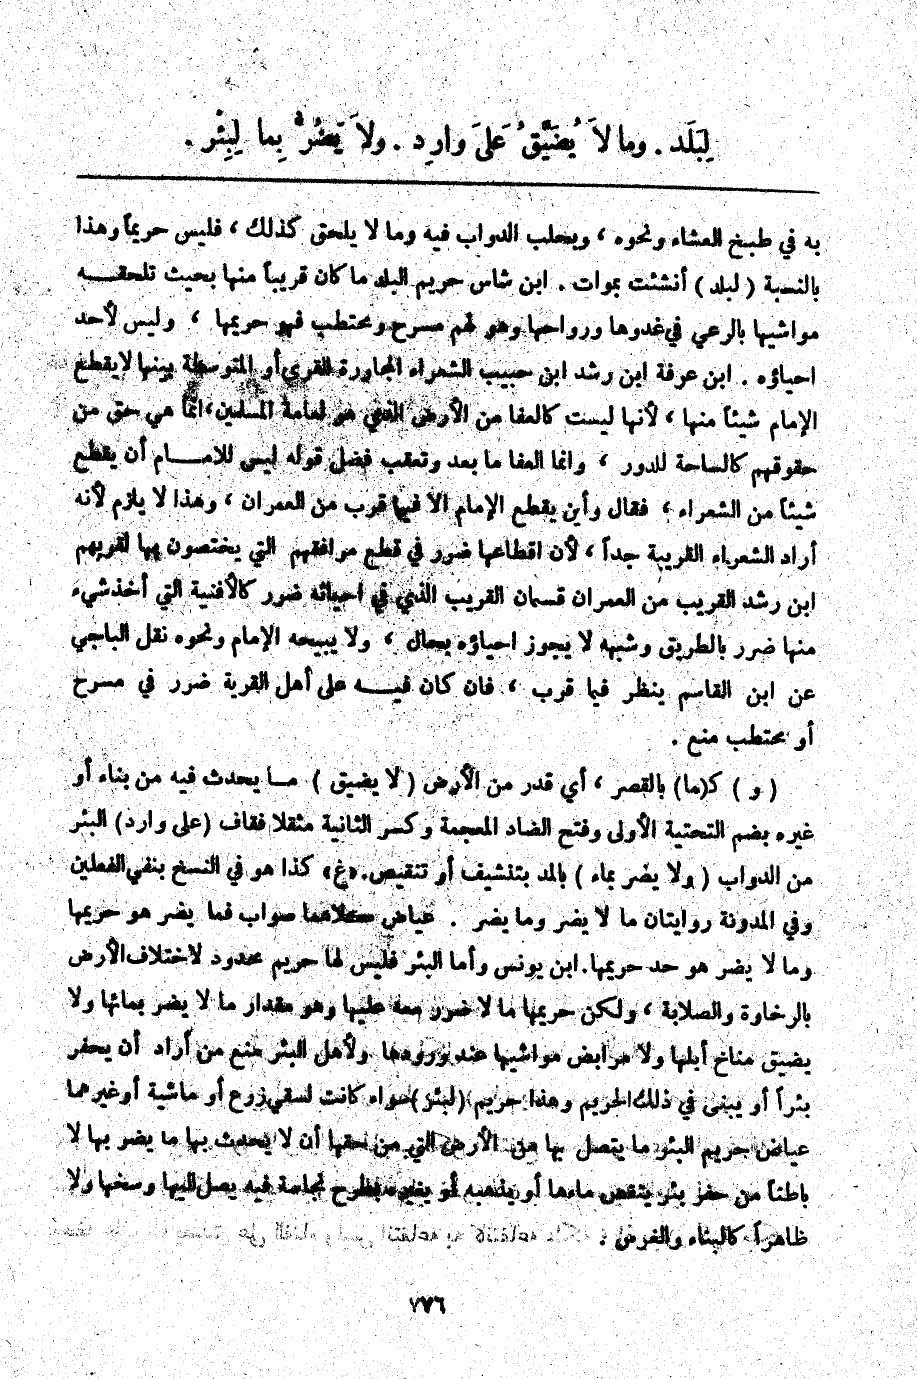 لِبَلَد . وما لاَ يُضَيِّقُ عَلَىَ وارِد . ولاَ يَضُرُّ بِما لِبِئْر .
به في طبخ العشاء ونحوه ، ويحلب الدواب فيه وما لا يلحق كذلك ، فليس حريماً وهذا
بالنسبة ( لبلد ) أنشئت بموات . ابن شاس حريم البلد ما كان قريباً منها بحيث تلحقـــه
مواشيها بالرعي في غدوها ورواحها وهو لهم مسرح ومحتطب فهو حريمها ، وليس لأحد
احياؤه . ابن عرفة ابن رشد ابن حبيب الشعراء المجاورة القرى أو المتوسطة بينها لا يقطع
الإمام شيئاً منها ، لأنها ليست كالعفا من الأرض الذي هو لعامة المسلمين، انما هي حق من
حقوقهم كالساحة للدور ، وانما العفا ما بعد وتعقب فضل قوله ليس للامـــام أن يقطع
شيئاً من الشعراء ، فقال وأين يقطع الإمام الا فيما قرب من العمران ، وهذا لا يلزم لأنه
أراد الشعراء القريبة جداً ، لأن اقطاعها ضرر في قطع مرافقهم التي يختصون بها لقربهم
ابن رشد القريب من العمران قسمان القريب الذي في احيائه ضرر كالأفنية التي أخذ شيء
منها ضرر بالطريق وشبهه لا يجوز احياؤه بحال ، ولا يبيحه الإمام ونحوه نقل الباجي
عن ابن القاسم ينظر فيما قرب ، فان كان فيـــه على أهل القرية ضرر في مسرح
أو محتطب منع .
( و ) كـ(ما) بالقصر ، أي قدر من الأرض ( لا يضيق ) مــا يحدث فيه من بناء أو
غيره بضم التحتية الأولى وفتح الضاد المعجمة وكسر الثانية مثقلا فقاف (على وارد) البئر
من الدواب ( ولا يضر بماء ) بالمد بتنشيف أو تنقيص. «غ» كذا هو في النسخ بنفي الفعلين
وفي المدونة روايتان ما لا يضر وما يضر . عياض كلاهما صواب فما يضر هو حريمها
وما لا يضر هو حد حريمها. ابن يونس وأما البئر فليس لها حريم محدود لاختلاف الأرض
بالرخاوة والصلابة ، ولكن حريمها ما لا ضرر معه عليها وهو مقدار ما لا يضر بمائها ولا
يضيق مناخ أبلها ولا مرابض مواشيها عند ورودها ولأهل البئر منع من أراد أن يحفر
بئراً أو يبنى في ذلك الحريم وهذا حريم (لبئر) سواء كانت لسقي زرع أو ماشية أو غيرهما
عياض حريم البئر ما يتصل بها من الأرض التي من حقها أن لا يحدث بها ما يضر بها لا
باطناً من حفر بئر ينقص ماءها أو يذهبه أو يغيره بطرح نجاسة فيه يصل اليها وسخها ولا
ظاهراً كالبناء والغرس .
٧٧٦